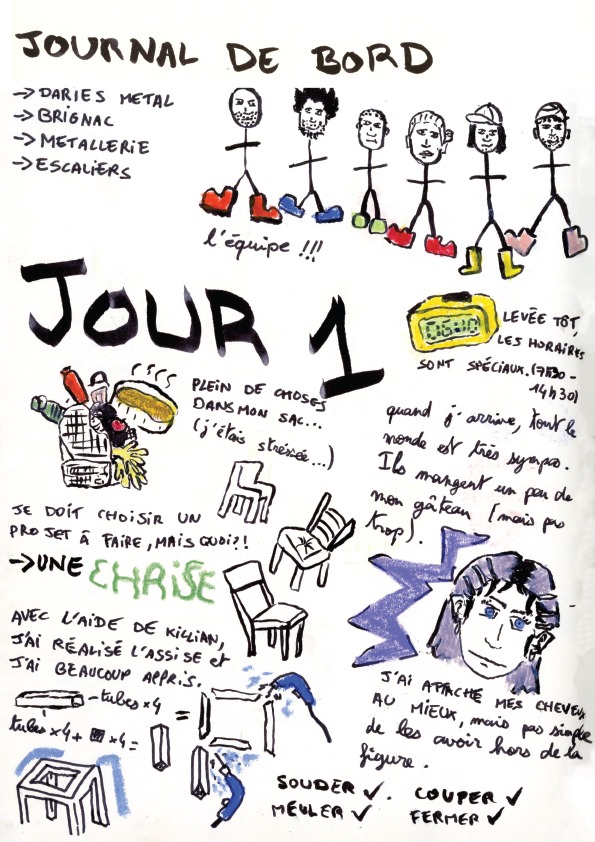 JOURNAL DE BORD
-> DARIES METAL
-> BRIGNAC
-> METALLERIE
-> ESCALIERS
l'équipe !!!
JOUR 1
06:10
LEVÉE TÔT,
LES HORAIRES
SONT SPÉCIAUX. (7H30 -
14H30)
PLEIN DE CHOSES
DANS MON SAC...
(j'étais stressée...)
quand j'arrive, tout le
monde est très sympa.
Ils mangent un peu de
mon gâteau (mais pas
trop).
JE DOIT CHOISIR UN
PROJET À FAIRE, MAIS QUOI?!
-> UNE CHAISE
AVEC L'AIDE DE KILLIAN,
J'AI RÉALISÉ L'ASSISE et
J'AI BEAUCOUP APPRIS.
- tubes x4
tubes x4 + x4 =
=
J'AI ATTACHÉ MES CHEVEUX
AU MIEUX, mais pas simple
de les avoir hors de la
figure.
SOUDER ✓. COUPER ✓
MEULER ✓ FERMER ✓